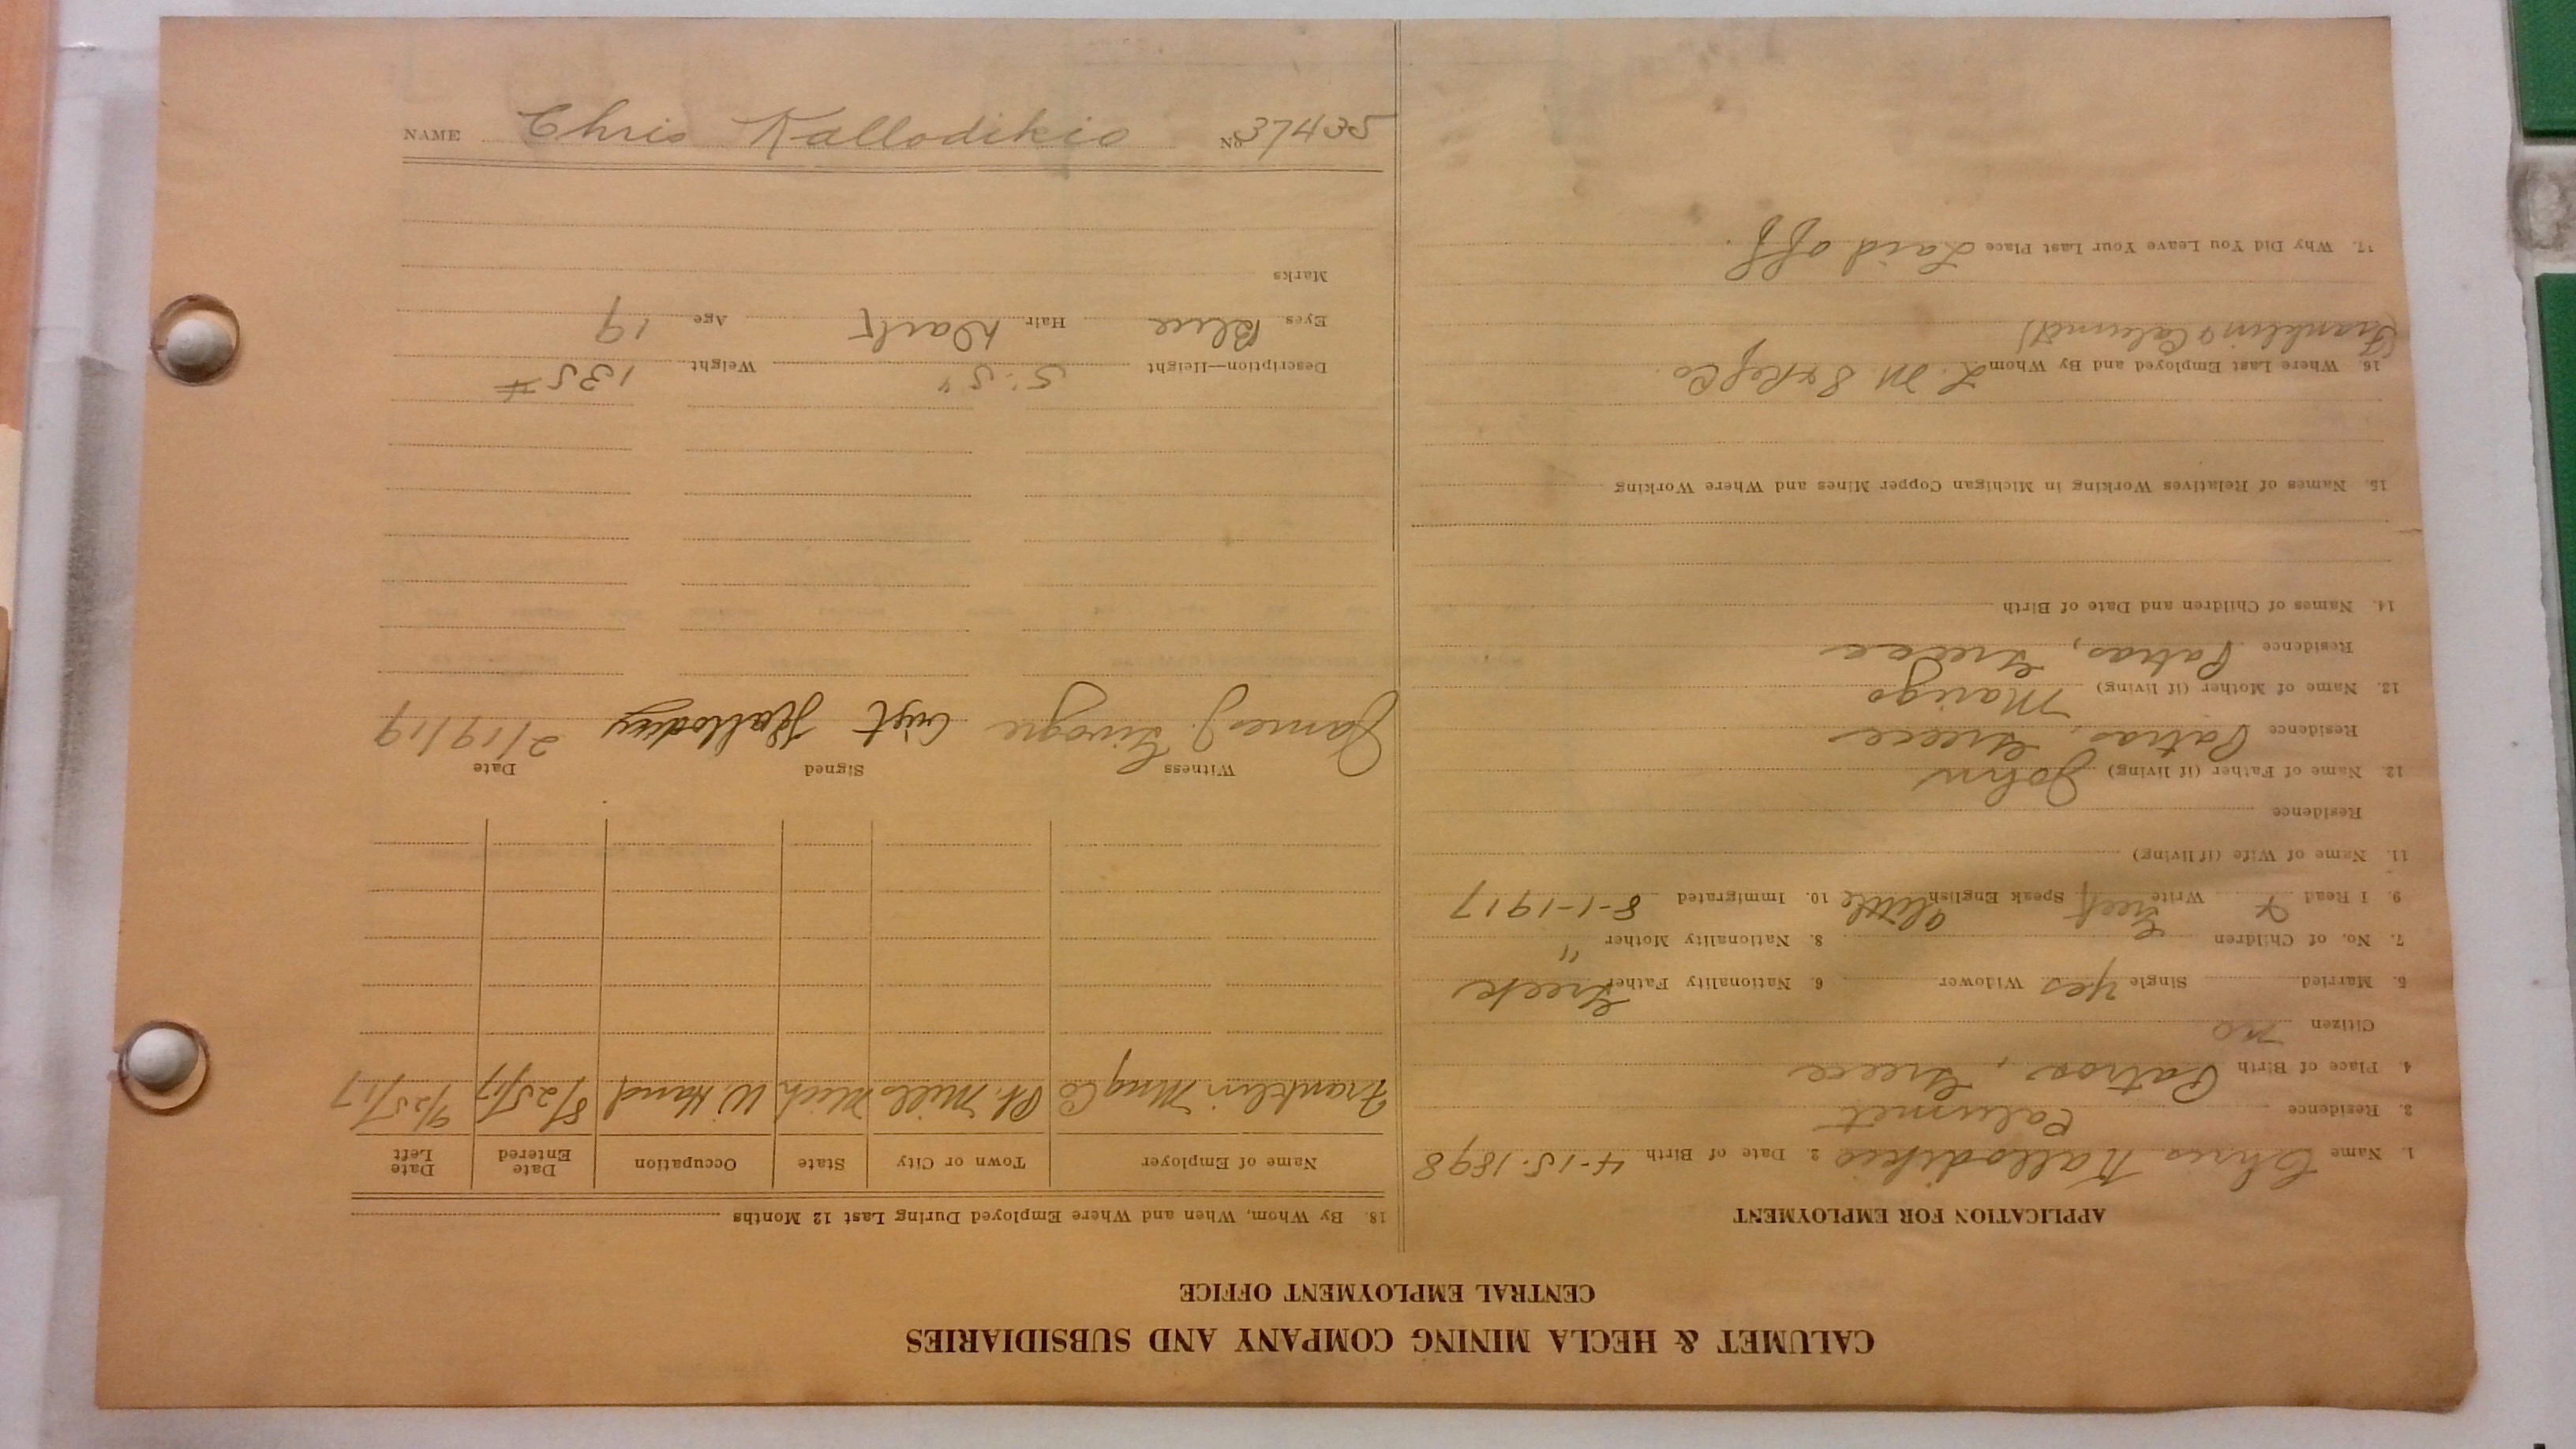 CALUMET & HECLA MINING COMPANY AND SUBSIDIARIES
CENTRAL EMPLOYMENT OFFICE
APPLICATION FOR EMPLOYMENT
1. Name Chris Kallodikio 2. Date of Birth 4-15-1898
3. Residence Calumet
4. Place of Birth Patras, Greece
Citizen no
5. Married Single Yes Widower 6. Nationality Father Greek
7. No. of Children 8. Nationality Mother "
9. I Read & Write Greek Speak English a little 10. Immigrated 8-1-1917
11. Name of Wife (if living)
Residence
12. Name of Father (if living) John
Residence Patras, Greece
13. Name of Mother (if living) Marigo
Residence Patras, Greece
14. Names of Children and Date of Birth
15. Names of Relatives Working in Michigan Copper Mines and Where Working
16. Where Last Employed and By Whom L. M. S & Ref Co.
(Franklin & Calumet)
17. Why Did You Leave Your Last Place Laid off.
18. By Whom, When and Where Employed During Last 12 Months
Name of Employer Town or City State Occupation Date Entered Date Left
Franklin Mng Co Pt. Mills Mich W. Hand 8/25/17 9/25/17
Witness Signed Date
James J. Crist 2/19/19
Description—Height 5' 5" Weight 135 #
Eyes Blue Hair Dark Age 19
Marks
NAME Chris Kallodikio No. 37435